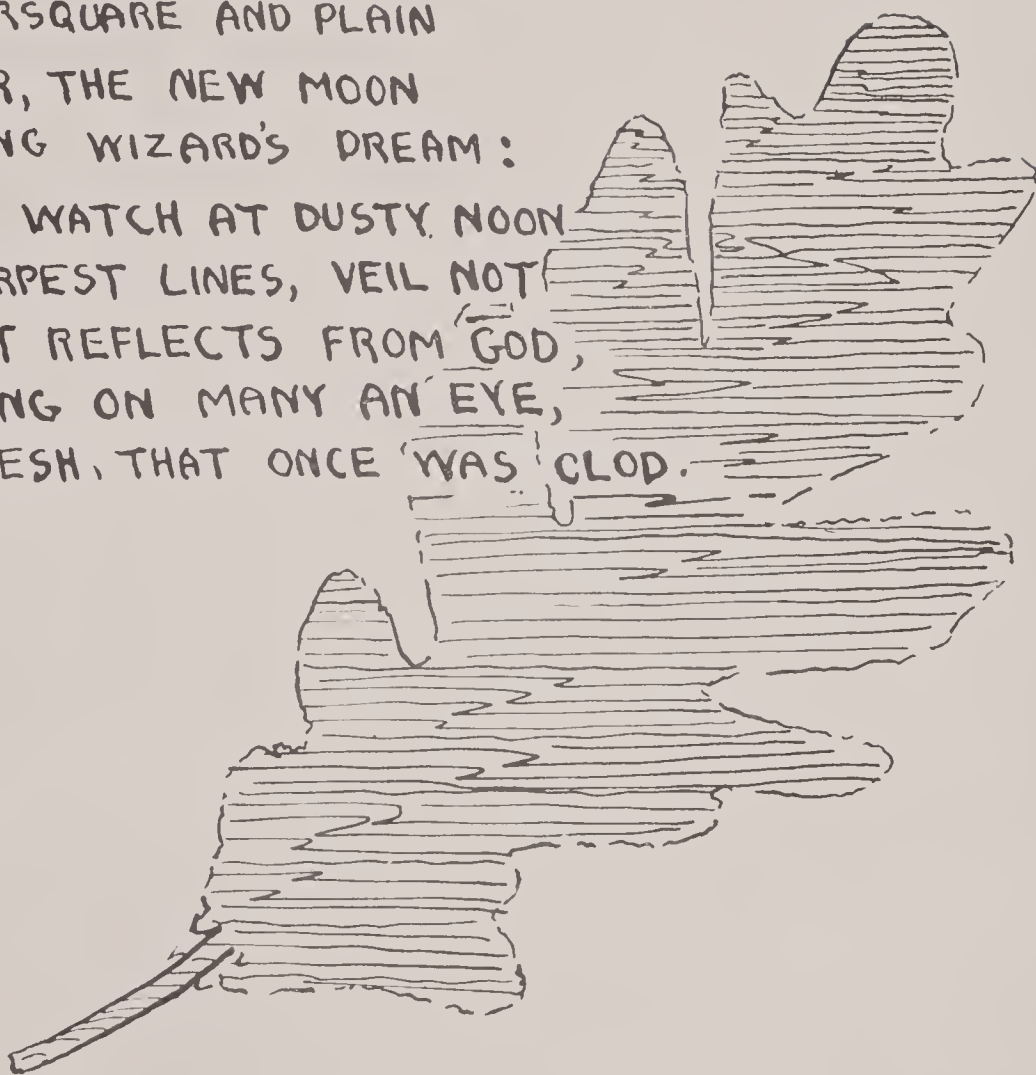 RSQUARE AND PLAIN
R, THE NEW MOON
NG WIZARD'S DREAM:
WATCH AT DUSTY NOON
RPEST LINES, VEIL NOT
T REFLECTS FROM GOD,
NG ON MANY AN EYE,
ESH, THAT ONCE WAS CLOD.